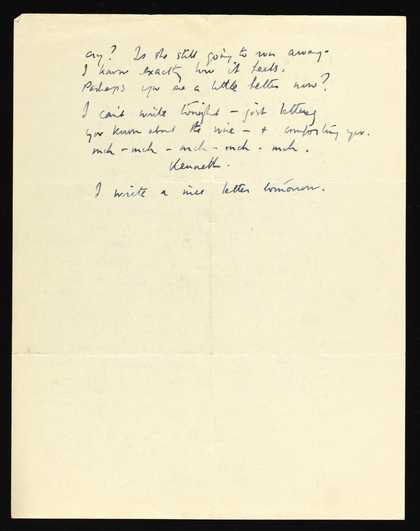 cry? Is she still going to run away -
I know exactly how it feels.
Perhaps you are a little better now?
I can't write tonight - just letting
you know about the wire - & comforting you.
mch - mch - mch - mch - mch.
Kenneth.
I write a nice letter tomorrow.